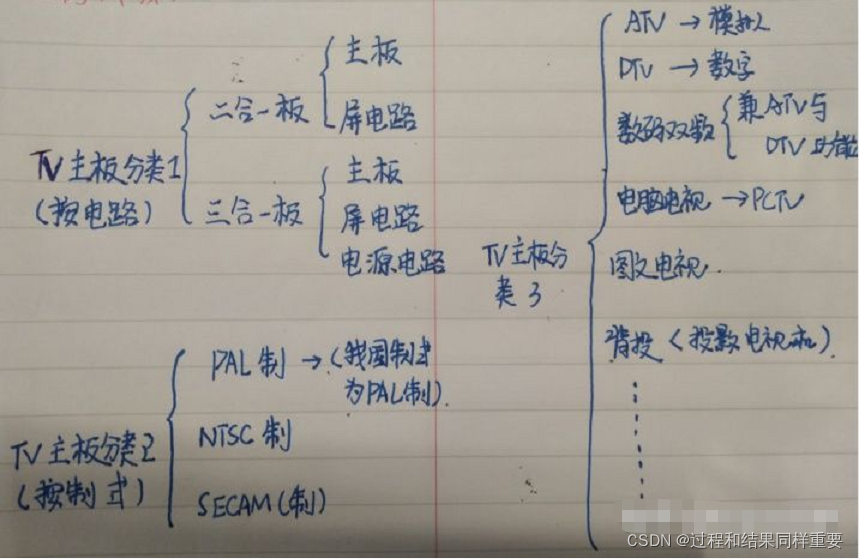 TV主板分类1
(按电路)
二合一板
主板
屏电路
三合一板
主板
屏电路
电源电路
TV主板分类2
(按制式)
PAL制 → (我国制式
为PAL制).
NTSC制
SECAM(制)
TV主板分
类3
ATV → 模拟
DTV → 数字
数码双数
兼ATV与
DTV功能
电脑电视 → PCTV
图文电视.
背投(投影电视机)
CSDN @过程和结果同样重要